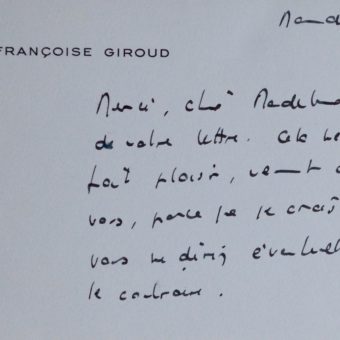 Mardi
FRANÇOISE GIROUD
Merci, chè
de votre lettre. Cela
fait plaisir, venant
vous, parce que je crois
vous me diriez éventuel
le contraire.